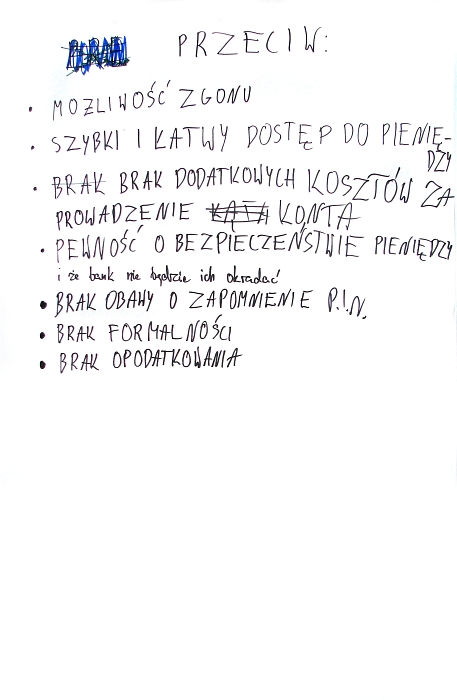 PRZECIW:
• MOŻLIWOŚĆ ZGONU
• SZYBKI I ŁATWY DOSTĘP DO PIENIĘ-
DZY
• BRAK BRAK DODATKOWYCH KOSZTÓW ZA
PROWADZENIE KONTA
• PEWNOŚĆ O BEZPIECZEŃSTWIE PIENIĘDZY
i że bank nie będzie ich okradać
• BRAK OBAWY O ZAPOMNIENIE P.I.N.
• BRAK FORMALNOŚCI
• BRAK OPODATKOWANIA